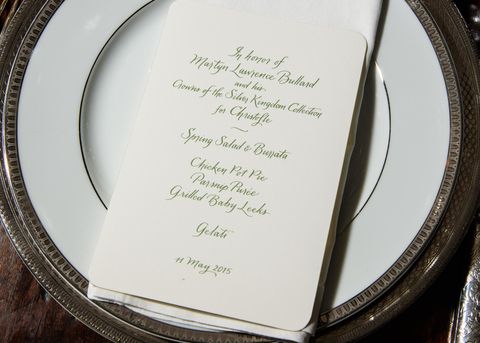 In honor of
Martyn Lawrence Bullard
and his
Crowns of the Silver Kingdom Collection
for Christofle
~
Spring Salad & Burrata
Chicken Pot Pie
Parsnip Purée
Grilled Baby Leeks
Gelati
11 May 2015